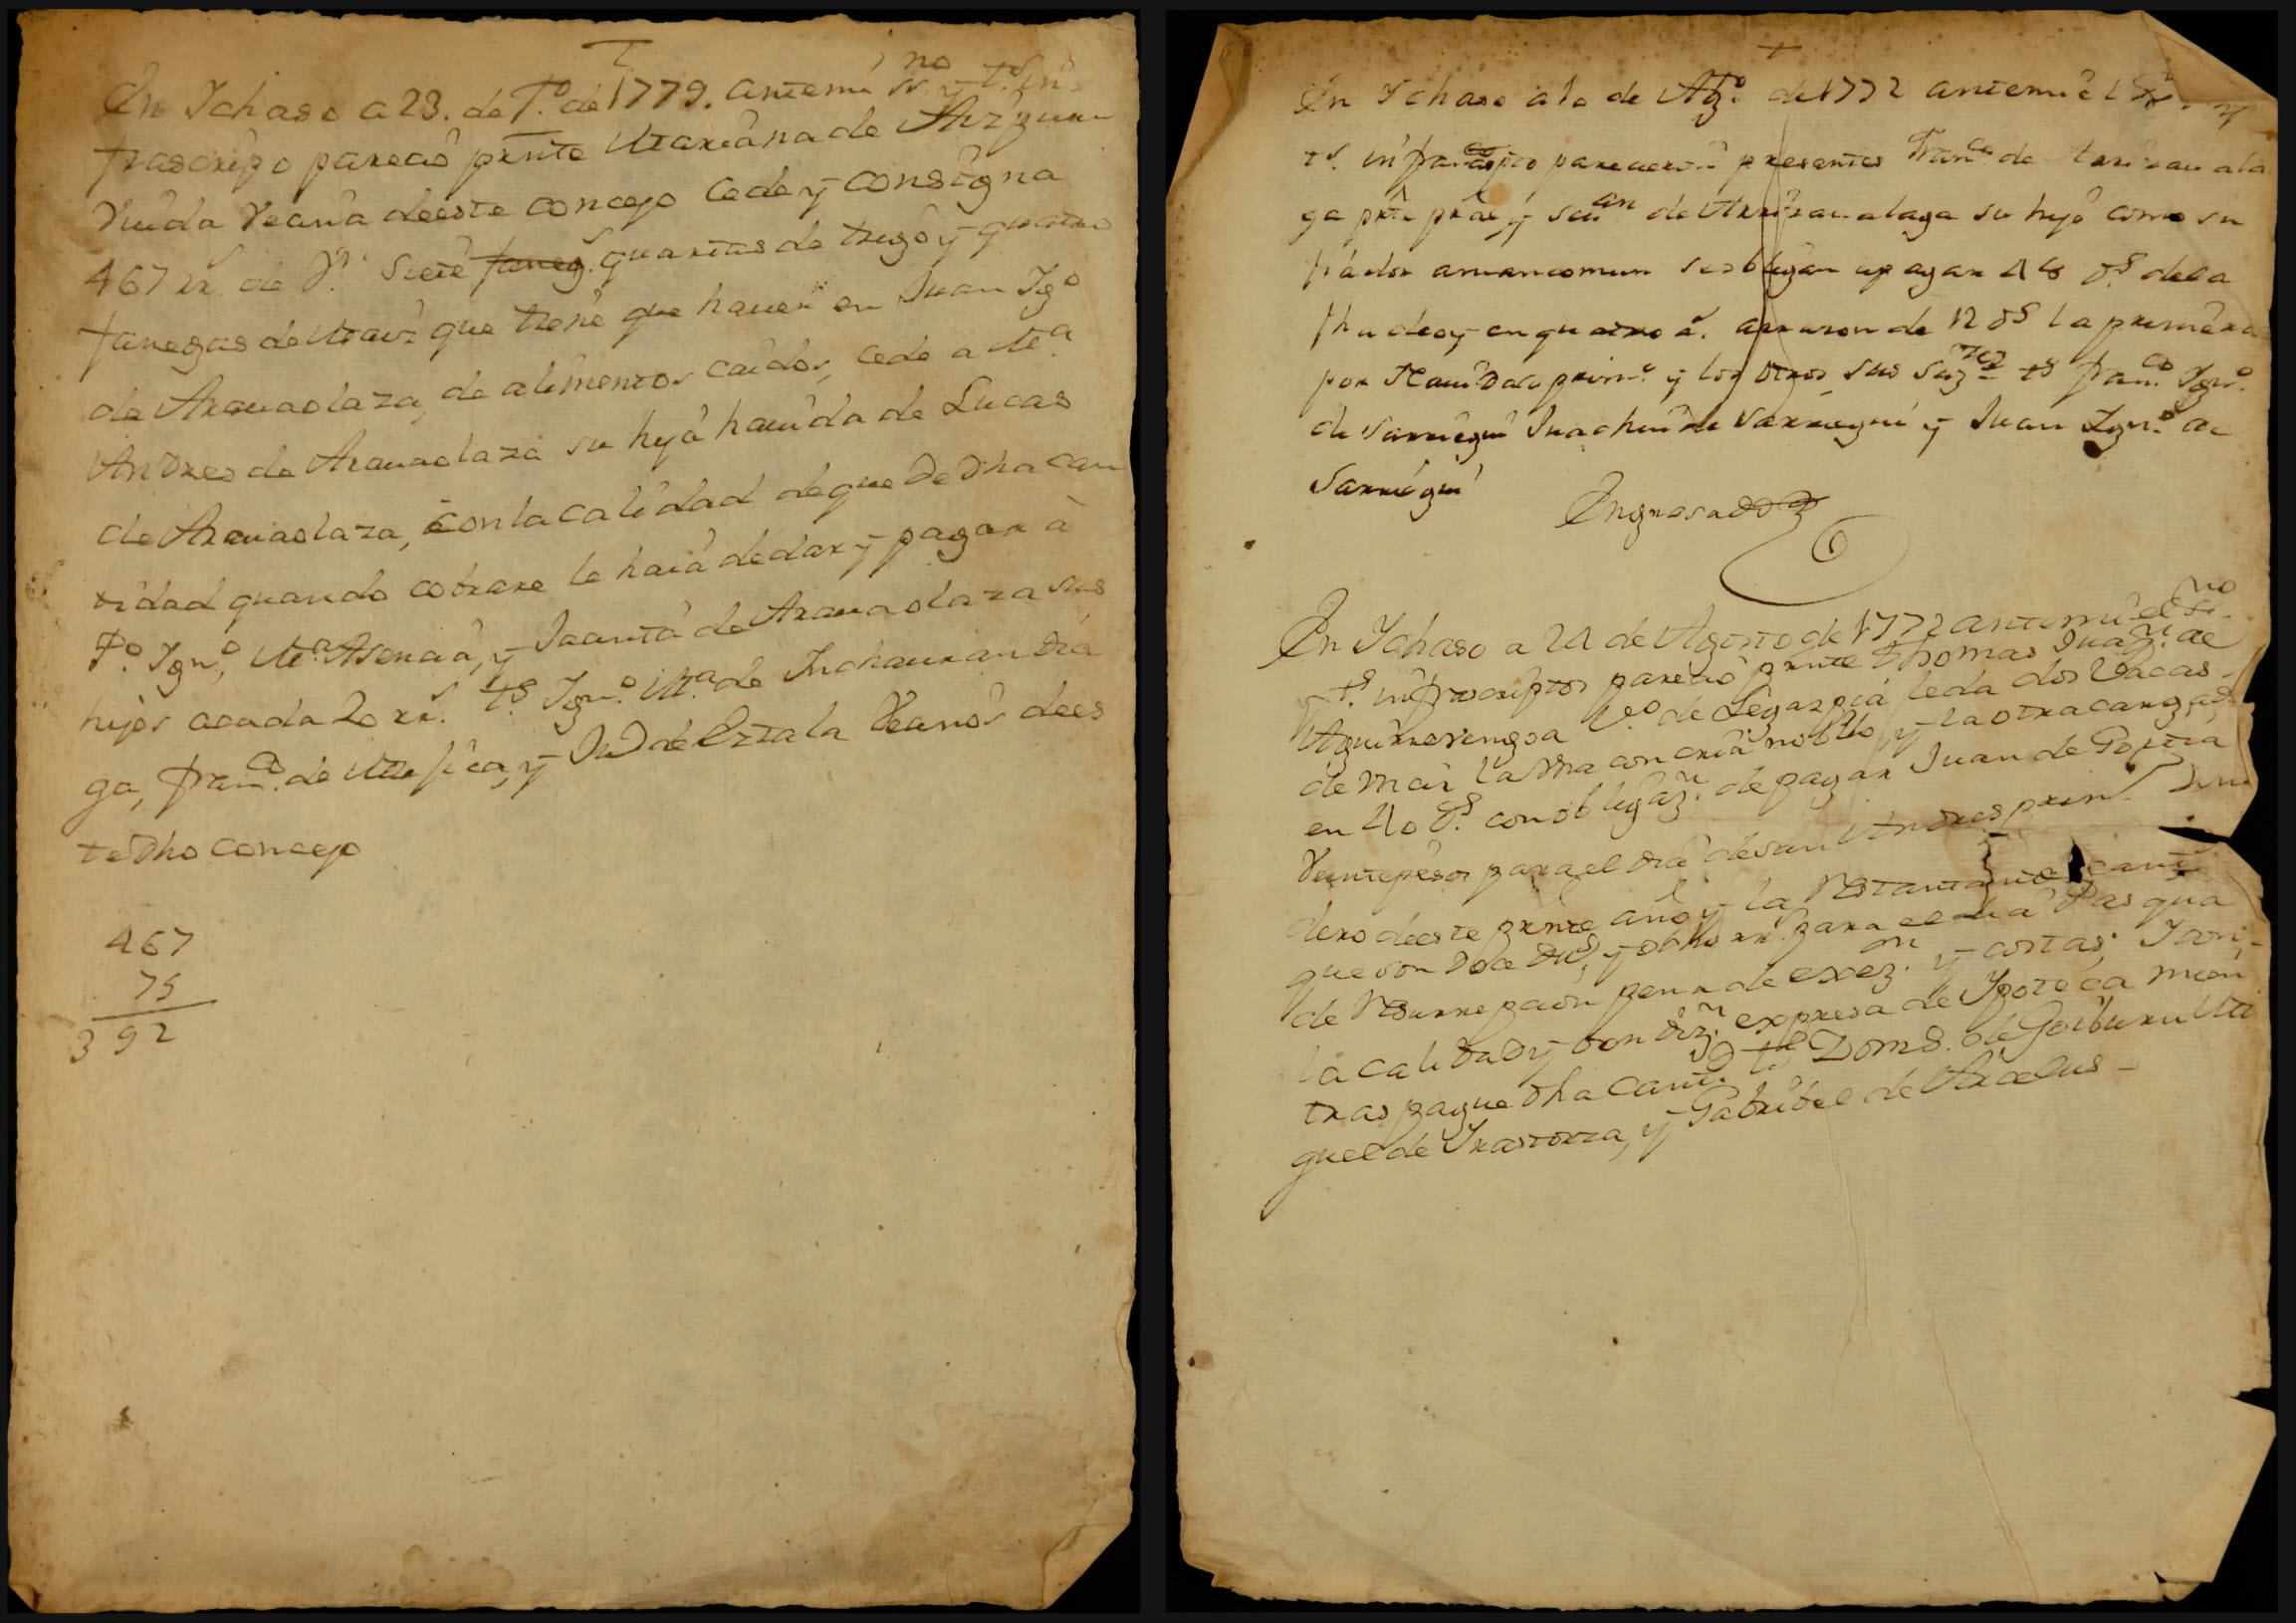 En Ichaso a 23. de Fº. de 1779. antemi ssno y ts. in
frascripo parecio prnte Mariana de Aizpuru
Viuda Vecina deeste concejo Cede y consigna
467 rrs. de Vn. Siete faneg. quartas de trigo y quatro
fanegas de Maiz que tiene que haver en Juan Igo
de Aramaolaza, de alimentos caidos, cede a Ma.
Andres de Aramaolaza su hija havida de Lucas
de Aramaolaza, con la calidad de que De Dha can
tidad quando cobrare le haia de dar y pagar à
Fº. Ignº, Ma. Asencia, y Jacinta de Aramaolaza sus
hijos acada 20 rrs. ts Ignº. Ma. de Inchaurandia
ga, Franco. de Mugica, y Jn de Eztala Vecinos dees
te Dho concejo
467
75
392
En Ichaso a 10 de Agto. de 1772 antemi el
ts. infrascripto parecieron presentes Franco. de Arrizavala
ga prte pral y Seuan de Arrizavalaga su hijo como su
fiador amancomun se obligan a pagar 48 Ds. dela
fha deoy en quatro as. a rrason de 12 Ds la primera
por Navidad primº. y los otros sus ts Franco. Ignº.
de Sarriegui Juachin de Sarriegui y Juan Ignº. de
Sarriegui
Engrosado
En Ichaso a 24 de Agosto de 1772 antemi el ssno
y ts. infrascriptos parecio prnte Thomas de
Aguirresengoa Vº de Legazpia le da dos Vacas
de Maiz la Una con cria nobillo y la otra cargada
en 40 Ds. con obligazn. de pagar Juan de Goitia
Veinte pesos para el dia de San Andres prim.
dero deeste prnte año y la Restante cant
que son Doce Dus, y ocho rrs. para el dia Pasqua
de Resurrepcion pena de exezn. y costas,
la calidad y condizn. expresa de Ipoteca mien
tras pague Dha Cantd ts Domo. de Goiburu Mi
guel de Irastorza, y Gabriel de Arcelus